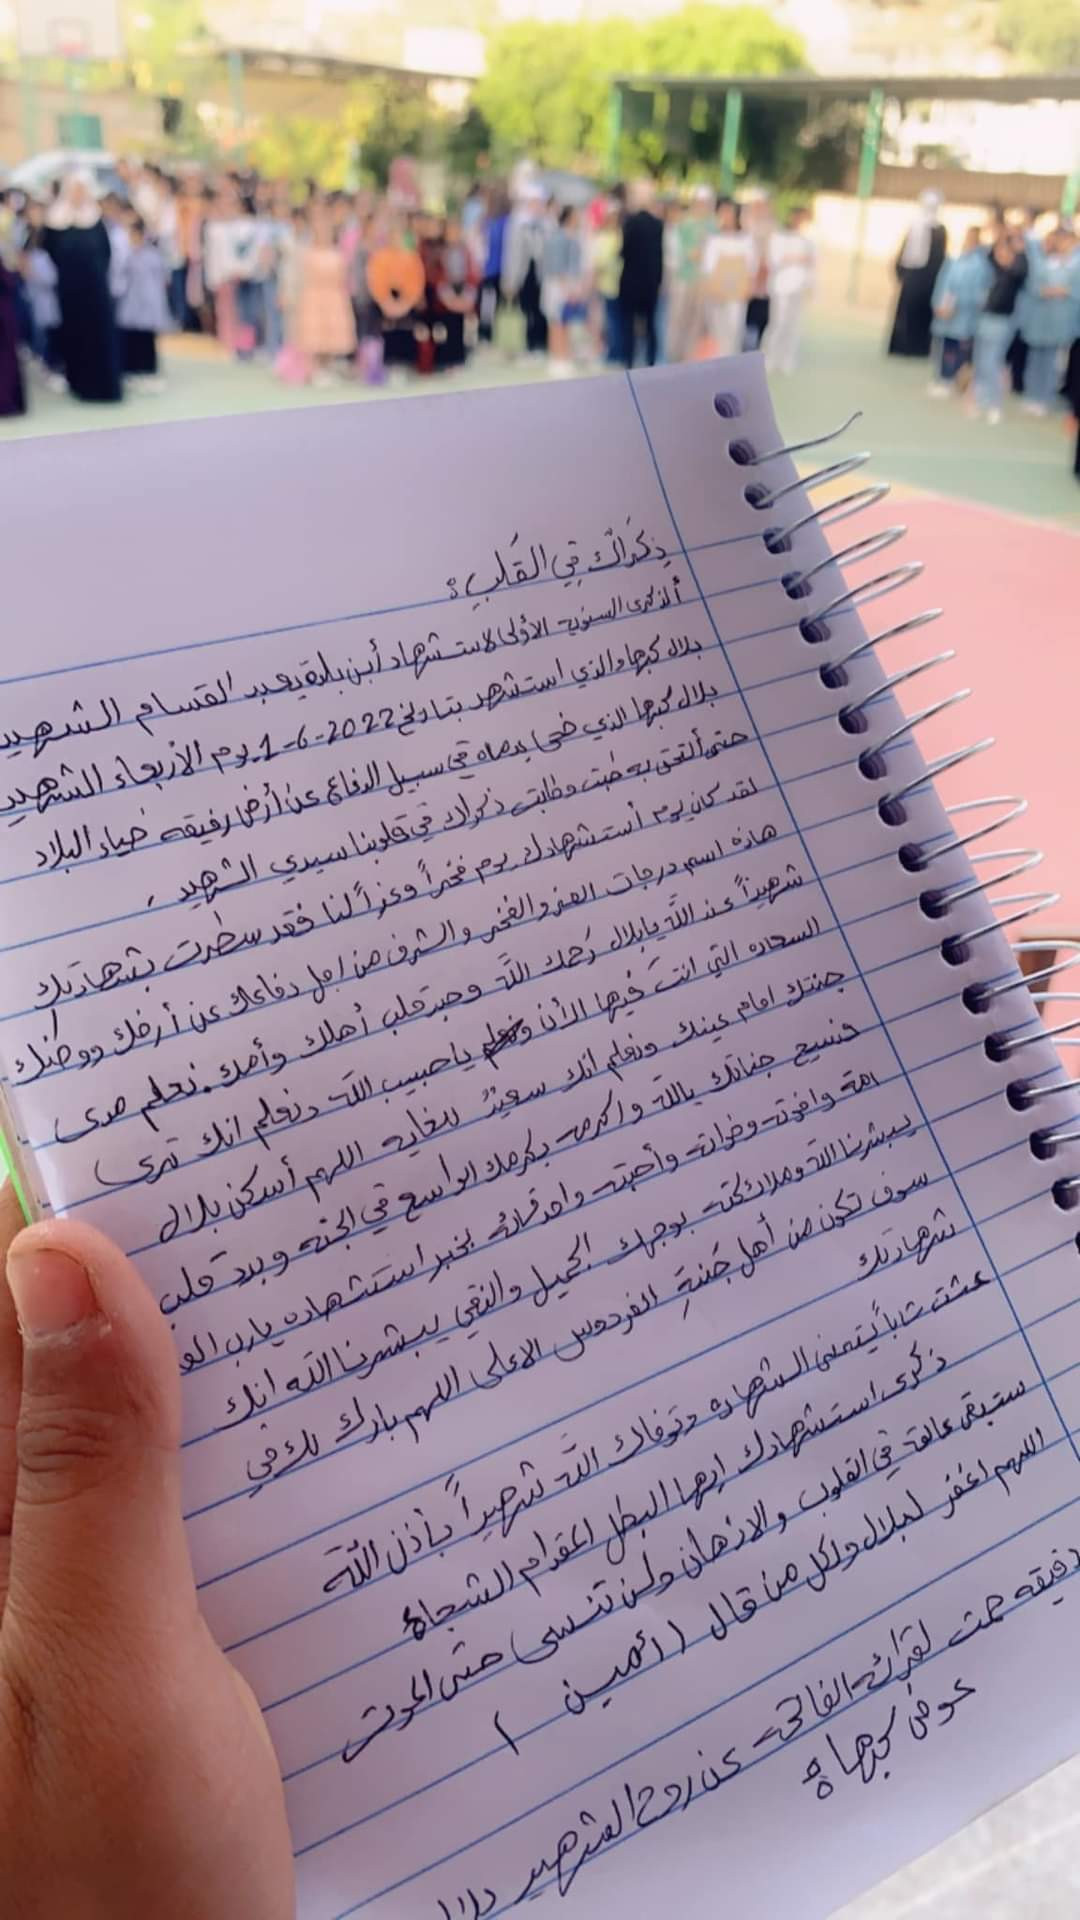 ذِكرَاكَ فِي القَلبِ :
ألذكرى السنوية الأولى لاستشهاد أبن بلدة يعبد القسام الشهيد
بلال كبها والذي استشهد بتاريخ 2022-6-1 يوم الأربعاء الشهيد
بلال كبها الذي ضحى بدماه في سبيل الدفاع عن أرض رفيقه ضياء البلاد
حتى ألتحق به طبت وطابت ذكراك في قلوبنا سيدي الشهيد ،
لقد كان يوم أستشهادك يوم فخراً وعزاً لنا فقد سطرت بشهادتك
هاذه اسم درجات العز والفخر والشرف من اجل دفاعك عن أرضك ووطنك
شهيداً عند اللّه يا بلال رَحمك اللّه وجبر قلب أهلك وأمك. نعلم مدى
السعاده التي انتَ فيها الأن يا حبيب اللّه ونعلم انك ترى
جنتك امام عينك ونعلم انك سعيدٌ للغايه اللهم أسكن بلال
فسيح جناتك ياللّه واكرمه بكرمك الواسع في الجنه وبرد قلب
امة واخوته وخواته وأحبته واصدقائه بخبر استشهاده يارب
يبشرنا اللّه وملائكته بوجهك الجميل والنقي يبشرنا اللّه انك
سوف تكون من أهل جَنةِ الفردوس الاعلى اللهم بارك لك في
شهادتك
عشت شاباً يتمنى الشهاده وتوفاك اللّه شهيداً بأذن اللّه
ذكرى استشهادك ايها البطل المقدام الشجاع
ستبقى عالقة في القلوب والاذهان ولن تنسى حتى الموت
اللهم اغفر لبلال ولكل من قال ( أمين )
دقيقه صمت لقرائة الفاتحة عن روح الشهيد بلال
عوض كبها